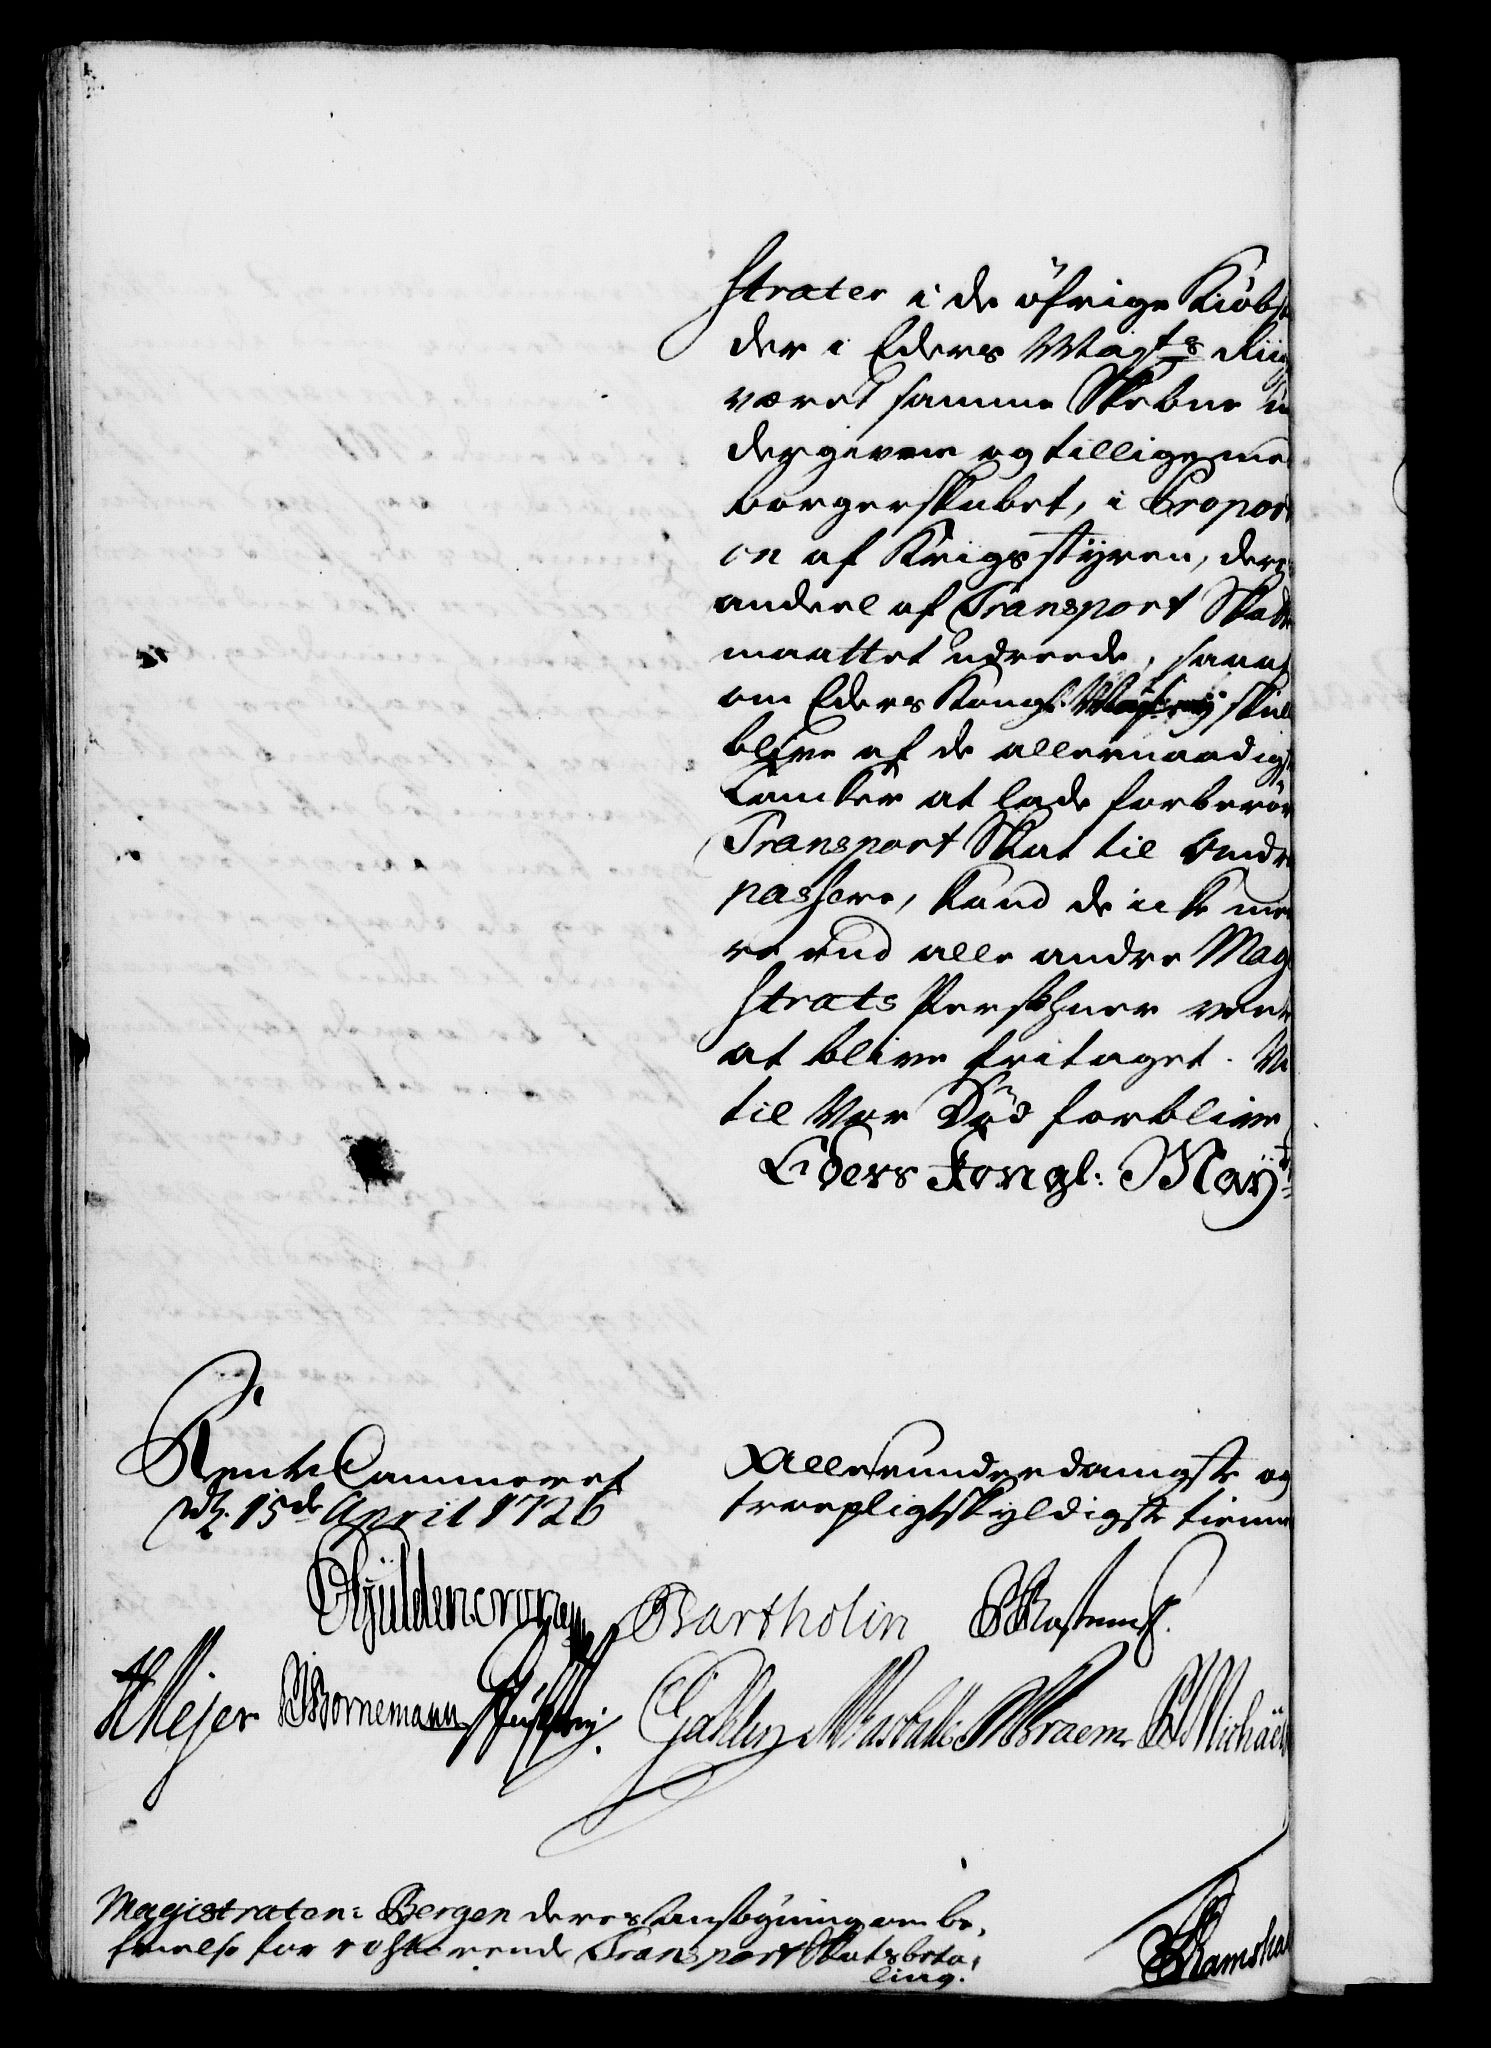 strater i de öfrige Kiöbst
der i Eders Mayts Riig
været samme Skebne u
dergivne og tillige med
borgerskabet, i Propor
on af Krigsstÿren, deres
andeel af Transport Skatt
maattet udreede, saa at
om Eders Kongl. skulle
blive af de allernaadigst
tancker at lade forberör
Transport Skat til andre
passere, kand de icke mee
re end alle andre Mag
strats Persohner vente
at blive fritaget. Vi
til Vor Död forblive
Eders Kongl: Mayts
Rente Cammeret
d. 15de April 1726
Allerunderdanigste og
troepligtskyldigste tienere
Gÿldencrone Bartholin
HMejer Bornemann Braem Michäel
Magistraten i Bergen deres ansögning om be-
frielse for resterende Transport Skats beta-
ling.
Ramsha